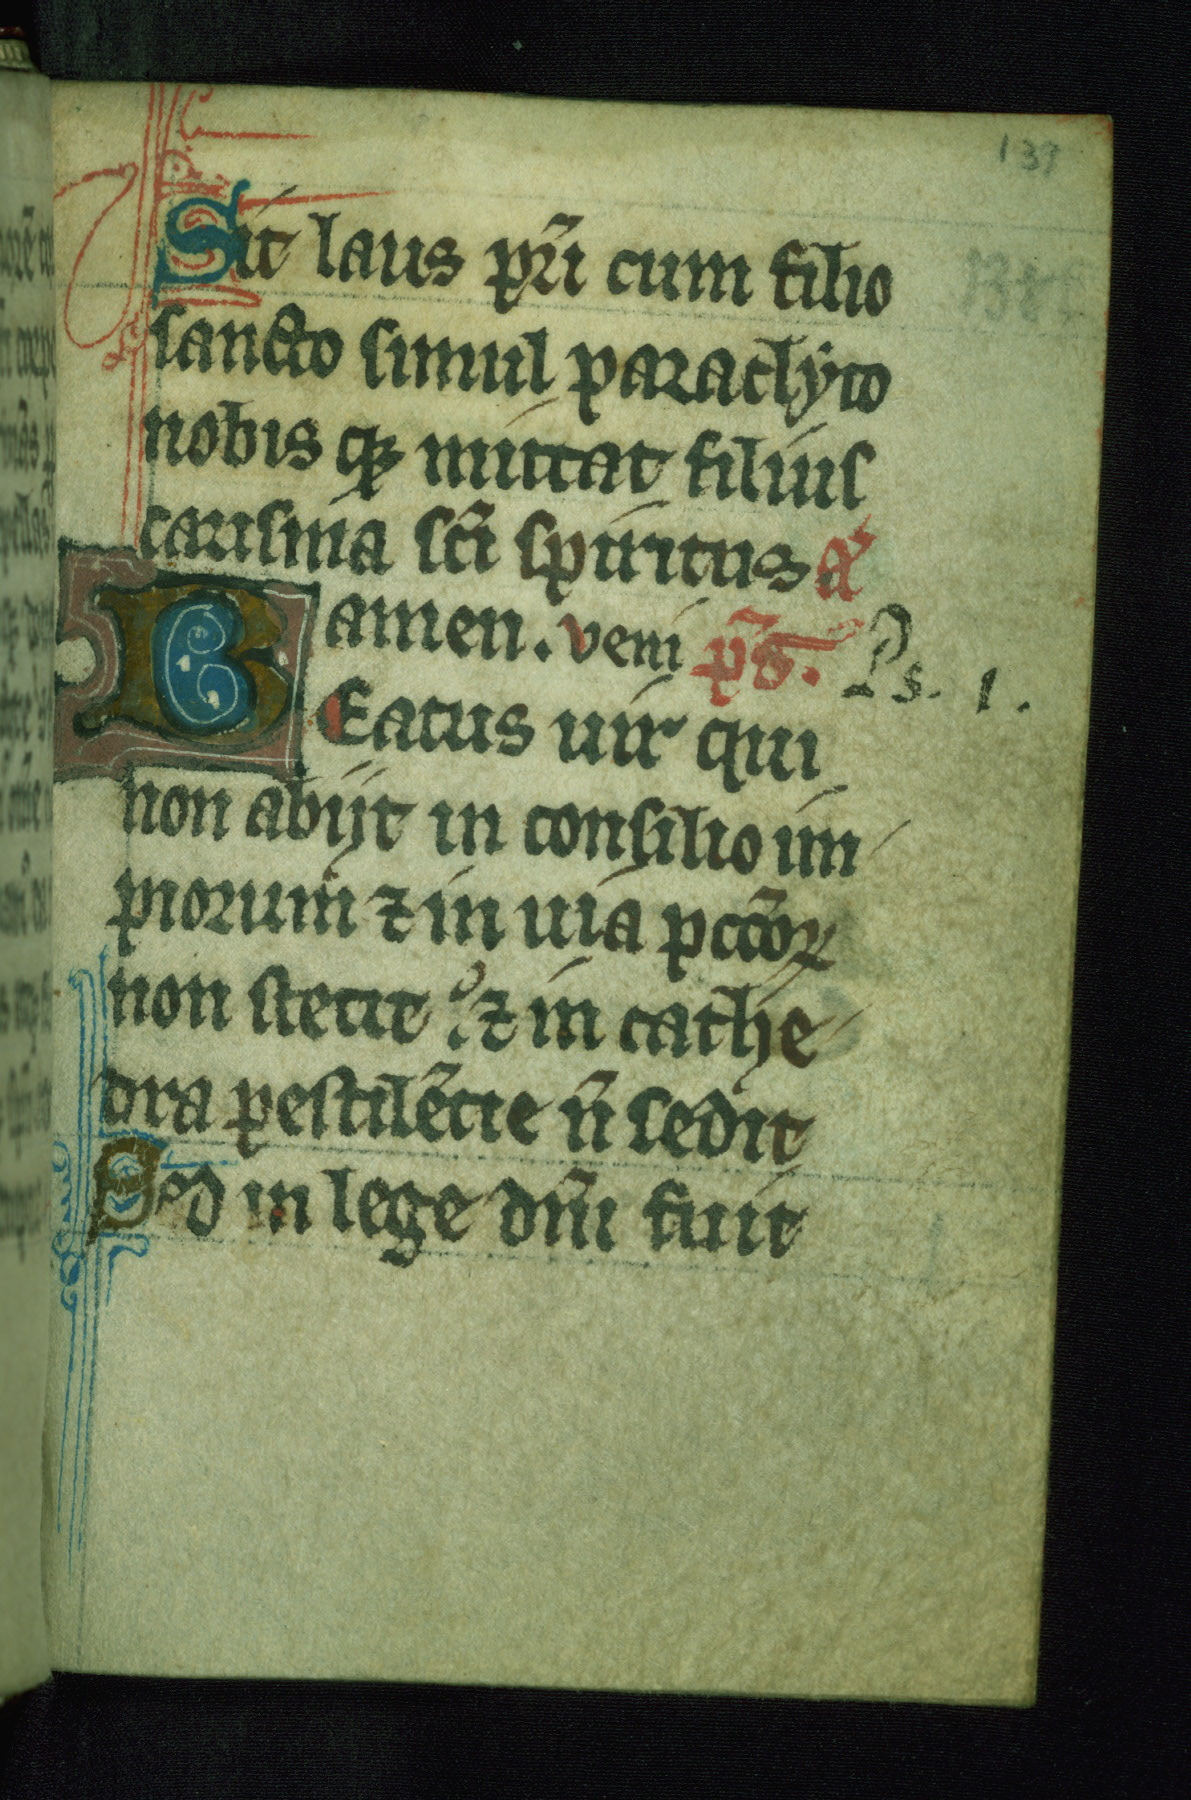 139
Sit laus pr̄i cum filio
sancto simul paraclẏto
nobis qꝫ mittat filius
carisma sc̄i spiritus a̅
amen. veni ps̄. Ps. 1.
BEatus uir qui
non abijt in consilio im
piorum ⁊ in uia pcc̄oꝝ
non stetit : ⁊ in cathe
dra pestilēcie n̄ sedit
Sed in lege dn̄i fuit